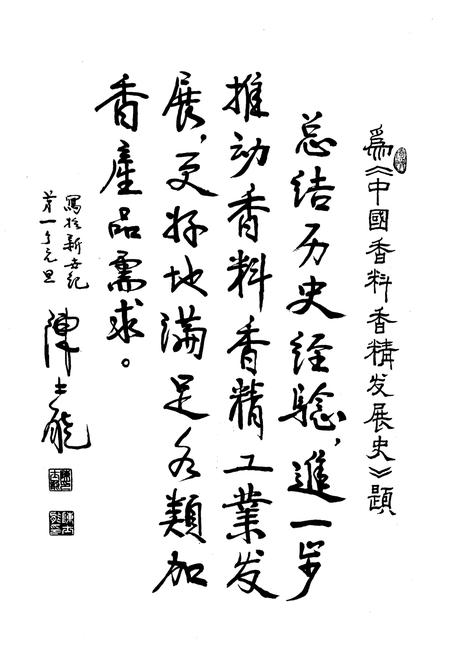 為《中國香料香精发展史》題
总结历史经驗，進一步
推动香料香精工業发
展，更好地满足各類加
香產品需求。
寫於新世纪
第一个元旦
陳士能